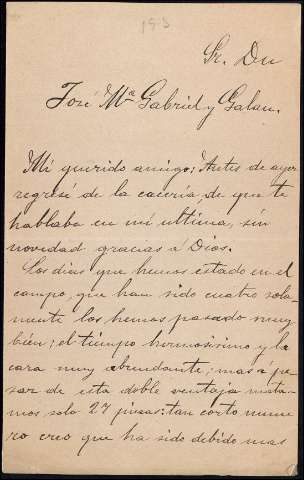 193
Sr. Dn
José Mª Gabriel y Galan.
Mi querido amigo: Antes de ayer
regresé de la caceria, de que te
hablaba en mi ultima, sin
novedad gracias a Dios.
Los dias que hemos estado en el
campo, que han sido cuatro sola-
mente los hemos pasado muy
bien; el tiempo hermosisimo y la
caza muy abundante; mas á pe-
sar de esta doble ventaja mata-
mos solo 27 piezas: tan corto nume
ro creo que ha sido debido mas